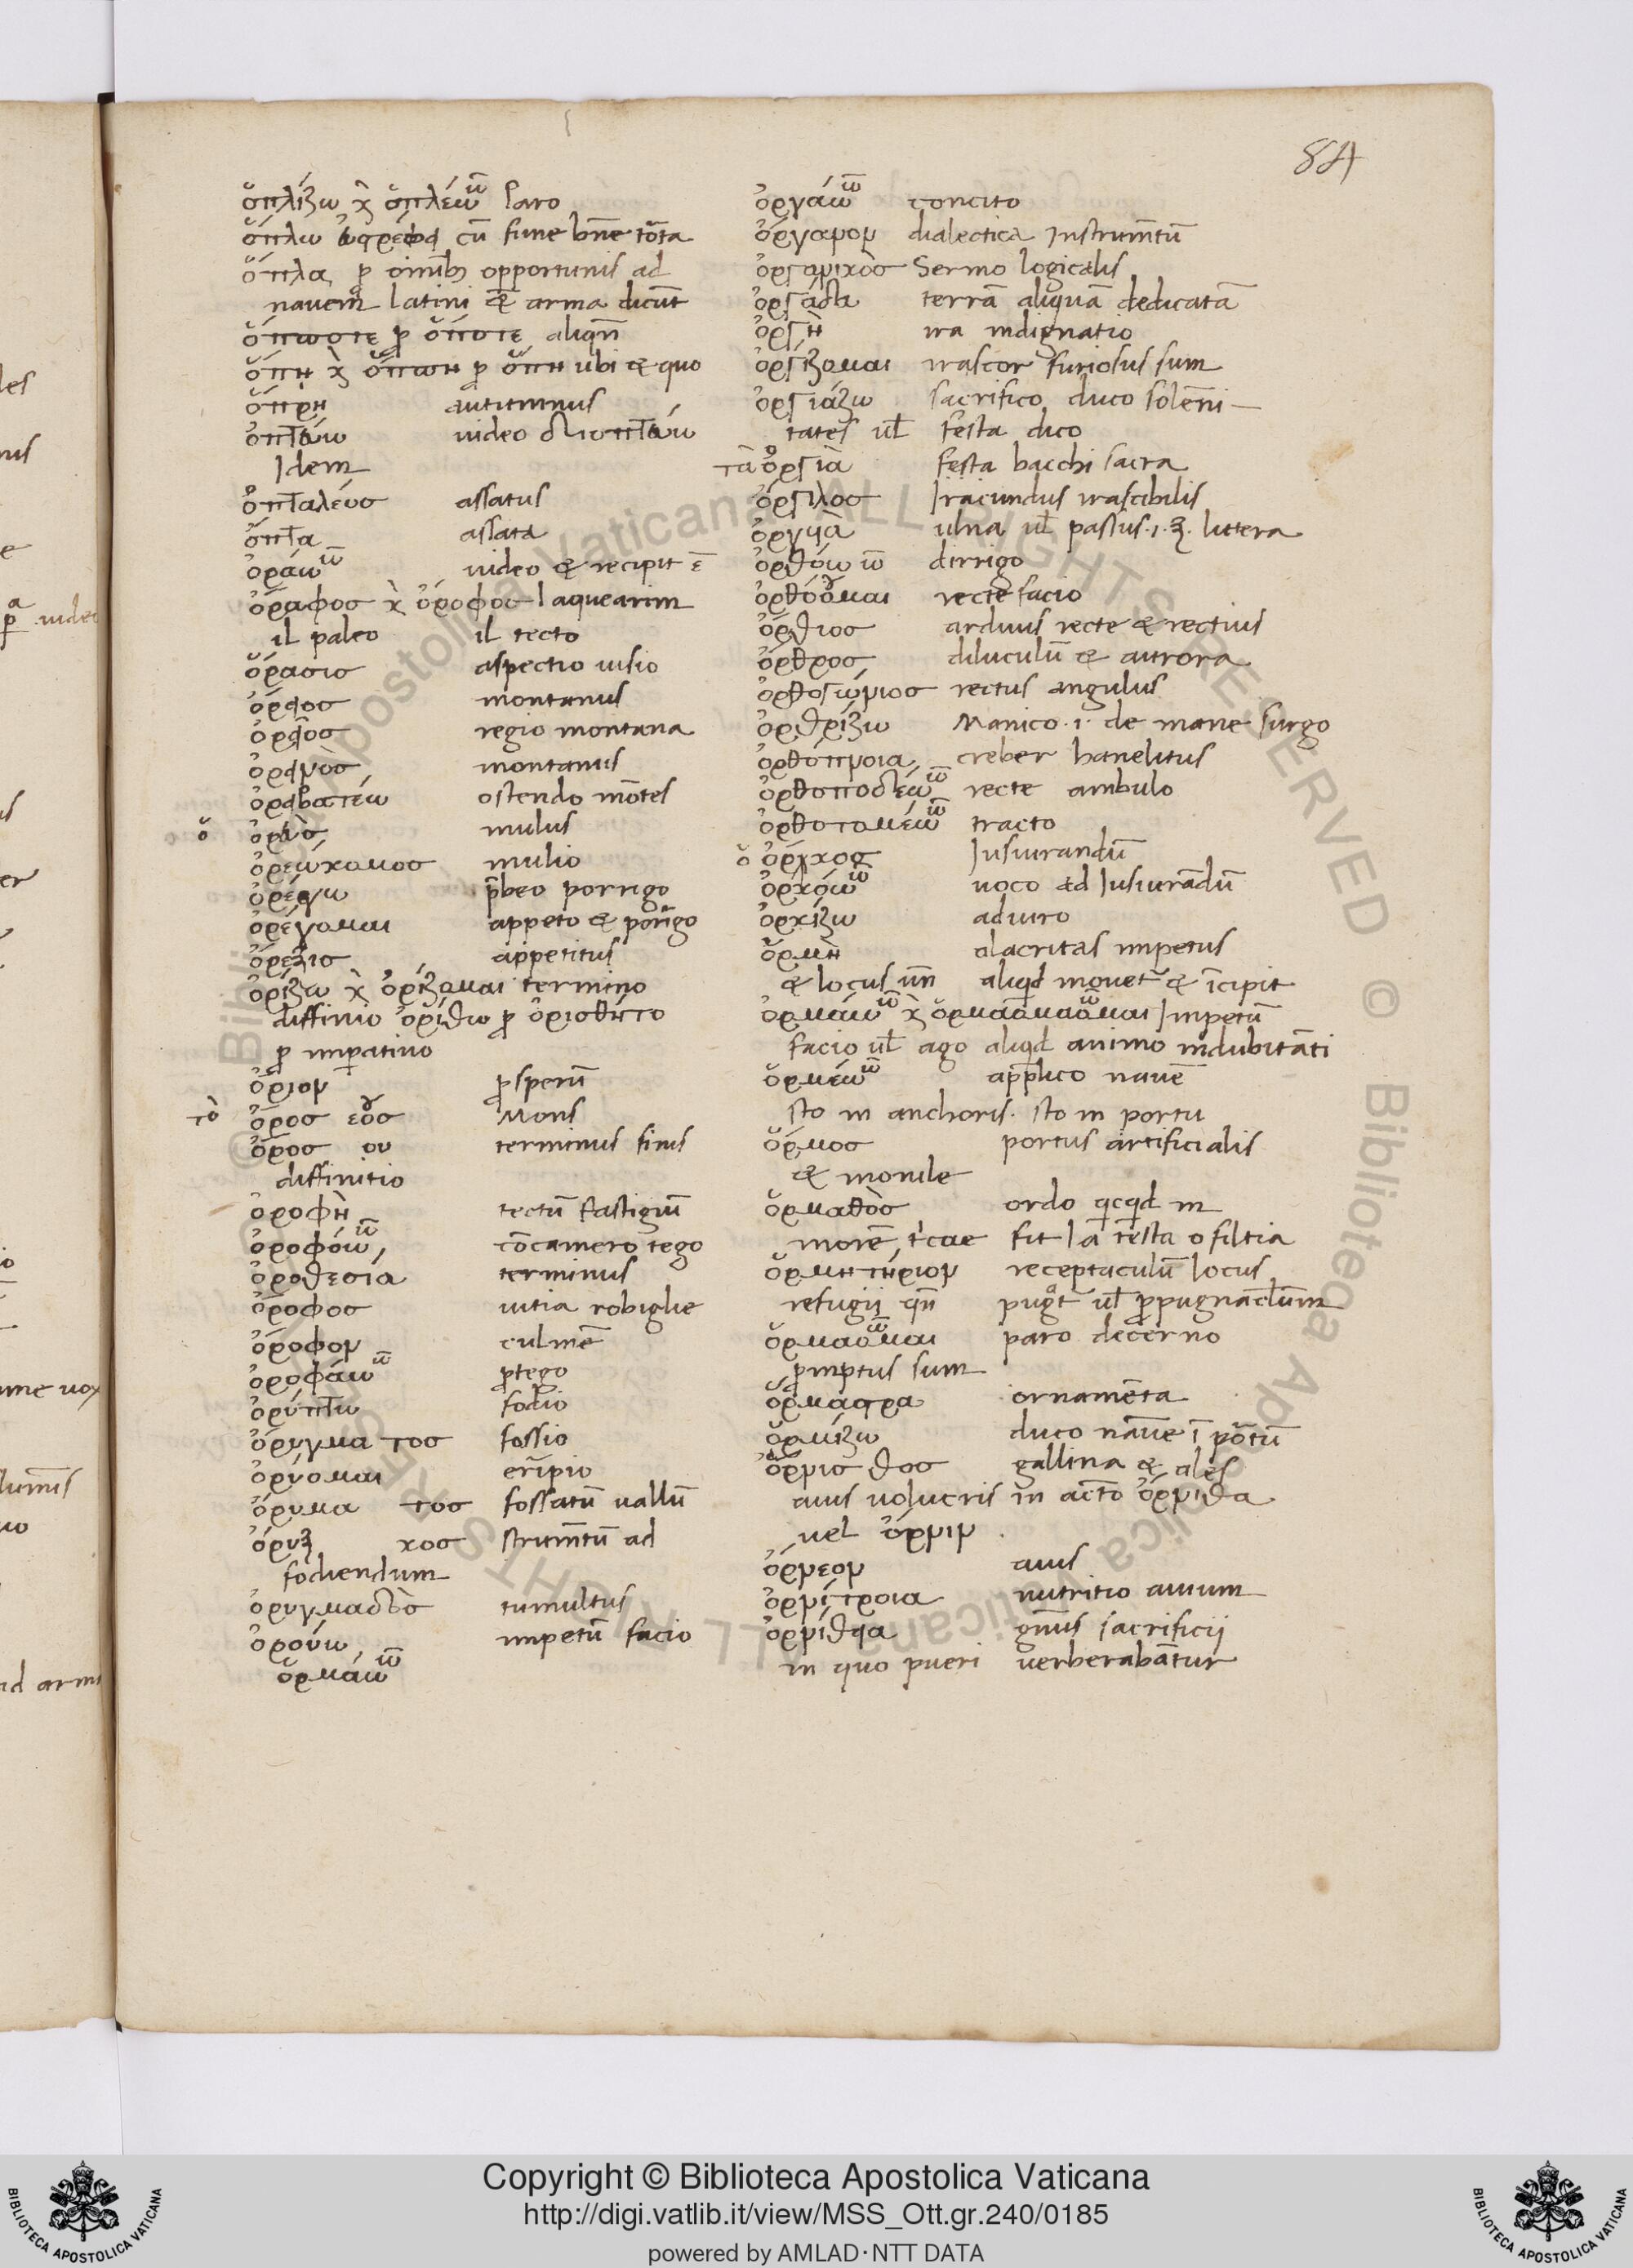 84
ὁπλίζω κ̀ ὁπλέω ῶ paro
ὅπλω ἐυστρεφεῖ cū fune bn̄e tōta
ὅπλα p omīb opportunis ad
nauem latini arma dicūt
ὅπωστε p ὅποτε aliqn̄
ὅπη κ̀ ὅπωη p ὅπη ubi & quo
ὀπρη autumnus
ὀπτάω uideo διοπτάω
Idem
ὀπταλέοσ assatus
ὀπτα assata
ὁράω ῶ uideo & recipit ε
ὄραφοσ κ̀ ὄροφοσ laquearim
il paleo il tecto
ὅρασισ aspectio uisio
ὄρειοσ montanus
ὀρεῖοσ regio montana
ὀρεινὸσ montanus
ὀρειβατέω ostendo mōtes
ὁ ὀρεὺσ mulus
ὀρεώκομοσ mulio
ὀρέγω p̄beo porrigo
ὀρέγομαι appeto & porrigo
ὄρεξισ appetitus
ὁρίζω κ̀ ὁρίζομαι termino
diffinio ὁρίθω p ὁρισθήτο
p imperatiuo
ὅριον prosperū
τὸ ὄροσ εοσ Mons
ὅροσ ου terminus finis
diffinitio
ὀροφὴ tectū fastigiū
ὀροφόω ῶ cōcamero tego
ὁροθεσία terminus
ὄροφοσ uitia robiglie
ὄροφον culmē
ὀροφάω ῶ protego
ὀρύπτω fodio
ὄρυγμα τοσ fossio
ὀρύομαι eripio
ὄρυμα τοσ fossatū uallū
ὄρυξ χοσ strumētū ad
fodiendum
ὀρυγμαδὸσ tumultus
ὀρούω impetū facio
ὁρμάω ῶ
ὀργάω ῶ concito
ὄργανον dialectica Instrumētū
ὀργανικὸσ Sermo logicalis
ὀργάδα terrā aliquā dedicatā
ὀργὴ ira indignatio
ὀργίζομαι irascor furiosus sum
ὀργιάζω sacrifico duco solēni-
tates ul̄ festa dico
τὰ ὄργια festa bacchi sacra
ὀργίλοσ Iracundus irascibilis
ὀργυιὰ ulna ul̄ passus .i. ξ. littera
ὀρθόω ῶ dirrigo
ὀρθοῦμαι recte facio
ὄρθιοσ arduus recte & rectius
ὄρθροσ diluculū & aurora
ὀρθογώνιοσ rectus angulus
ὀρθρίζω Manico .i. de mane surgo
ὀρθόπνοια creber hanelitus
ὀρθοποδέω ῶ recte ambulo
ὀρθοτομέω ῶ tracto
ὁ ὅρκοσ Iusiurandū
ὁρκόω ῶ uoco ad Iusiurādū
ὁρκίζω adiuro
ὁρμὴ alacritas impetus
& locus un̄ aliqd mouet & īcipit
ὁρμάω ῶ κ̀ ὁρμάομαι ῶμαι Impetū
facio ul̄ ago aliqd animo indubitāti
ὁρμέω ῶ applico nauē
sto in anchoris. sto in portu
ὅρμοσ portus artificialis
& monile
ὁρμαθὸσ ordo qcqd in
morē fit la testa o filtia
ὁρμητήριον receptaculū locus
refugij qn̄ pugat ul̄ propugnaclum
ὁρμάομαι ῶ paro decerno
promptus sum
ὅρμαστρα ornamēta
ὁρμίζω duco nauē ī portū
ὄρνισ θοσ gallina & ales
auis uolucris in acto ὄρνιθα
uel ὄρνιν
ὄρνεον auis
ὀρνίτροια nutritio auium
ὀρνίθεια gn̄us sacrificij
in quo pueri uerberabātur
Copyright © Biblioteca Apostolica Vaticana
http://digi.vatlib.it/view/MSS_Ott.gr.240/0185
powered by AMLAD·NTT DATA